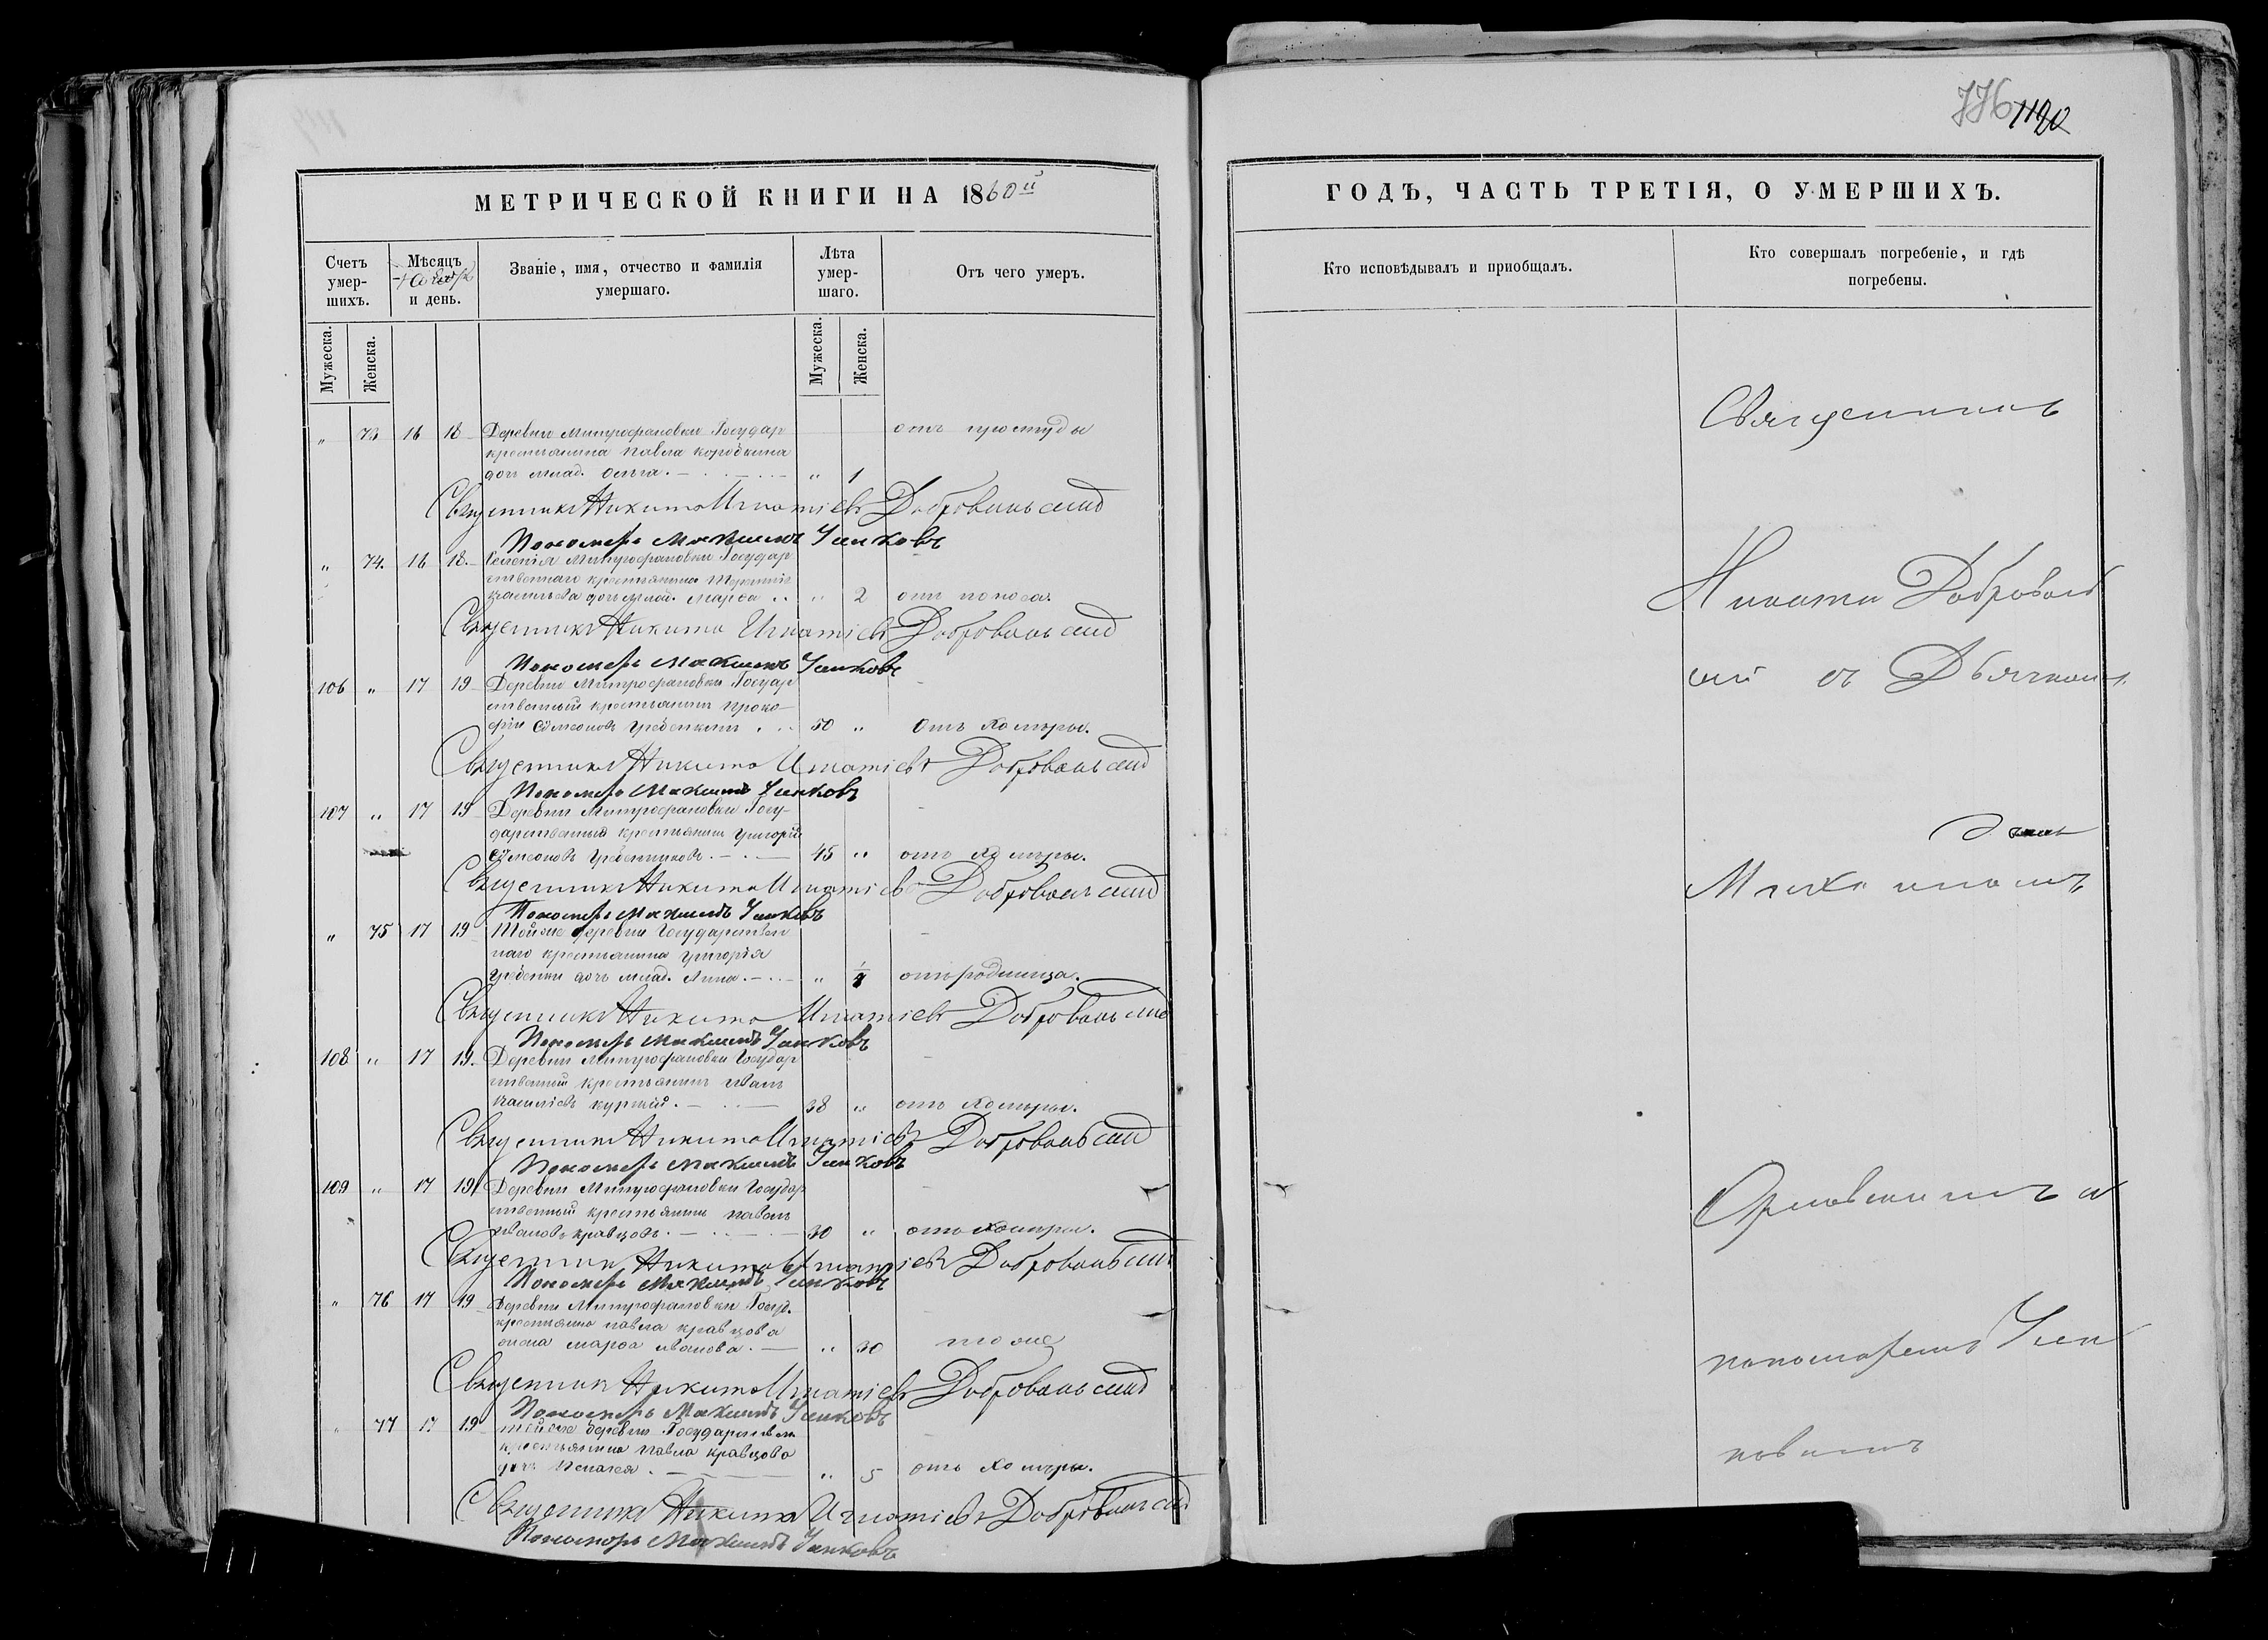 776 1120
МЕТРИЧЕСКОЙ КНИГИ НА 1860й
Счетъ умер-шихъ.
Мѣсяцъ
и день.
Званіе, имя, отчество и фамилія умершаго.
Лѣта умер-шаго.
Отъ чего умеръ.
Мужеска.
Женска.
Мужеска.
Женска.
„ 73 16 18 Деревни Митрофановки Государ отъ простуды
крестьянина Павла Коробкина
дочь млад. Ольга. „ 1
Священникъ Никита Игнатіевъ Добровольскій
Пономарь Максимъ
„ 74. 16 18. Селенія Митрофановки Государ
ственнаго крестьянина
дочь млад. Марѳа „ 2 отъ поноса.
Священникъ Никита Игнатіевъ Добровольскій
Пономарь Максимъ
106 „ 17 19 Деревни Митрофановки Государ
ственный крестьянинъ Проко-
фій Сѵмеоновъ 50 „ Отъ холеры.
Священникъ Никита Игнатіевъ Добровольскій
Пономарь Максимъ
107 „ 17 19 Деревни Митрофановки Госу-
дарственный крестьянинъ Григорій
Сѵмеоновъ Гребенниковъ. 45 „ отъ холеры.
Священникъ Никита Игнатіевъ Добровольскій
Пономарь Максимъ
„ 75 17 19 Тойже деревни Государствен
наго крестьянина Григорія
дочь млад. Анна. „ отъ родимца.
Священникъ Никита Игнатіевъ Добровольскій
Пономарь Максимъ
108 „ 17 19. Деревни Митрофановки Государ
ственный крестьянинъ Иванъ
38 „ отъ холеры.
Священникъ Никита Игнатіевъ Добровольскій
Пономарь Максимъ
109 „ 17 19 Деревни Митрофановки Государ
ственный крестьянинъ Павелъ
Ивановъ Кравцовъ. 30 „ отъ холеры.
Священникъ Никита Игнатіевъ Добровольскій
Пономарь Максимъ
„ 76 17 19 Деревни Митрофановки Госуд.
крестьянина Павла Кравцова
жена Марѳа Иванова. „ 30 тоже
Священникъ Никита Игнатіевъ Добровольскій
Пономарь Максимъ
„ 77 17 19 тойже деревни Государствен
крестьянина Павла Кравцова
дочь Пелагея. „ 5 отъ холеры.
Священникъ Никита Игнатіевъ Добровольскій
Пономарь Максимъ
ГОДЪ, ЧАСТЬ ТРЕТІЯ, О УМЕРШИХЪ.
Кто исповѣдывалъ и пріобщалъ.
Кто совершалъ погребеніе, и гдѣ
погребены.
Священникъ
Никита Добровол
скій съ Дьячкомъ
Орловскимъ и
пономаремъ